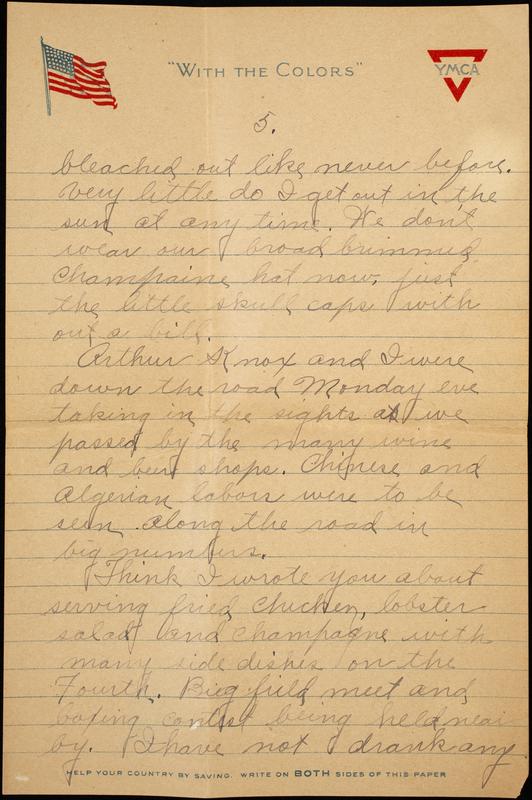 "WITH THE COLORS"
YMCA
5.
bleached out like never before.
Very little do I get out in the
sun at any time. We don't
wear our broad brimmed
Champaine hat now, just
the little skull caps with
out a bill.
Arthur Knox and I were
down the road Monday eve
taking in the sights as we
passed by the many wine
and beer shops. Chinese and
Algerian labors were to be
seen along the road in
big numbers.
Think I wrote you about
serving fried chicken, lobster
salad and champagne with
many side dishes on the
Fourth. Bieg field meet and
boxing contest being held near
by. I have not drank any
HELP YOUR COUNTRY BY SAVING. WRITE ON BOTH SIDES OF THIS PAPER